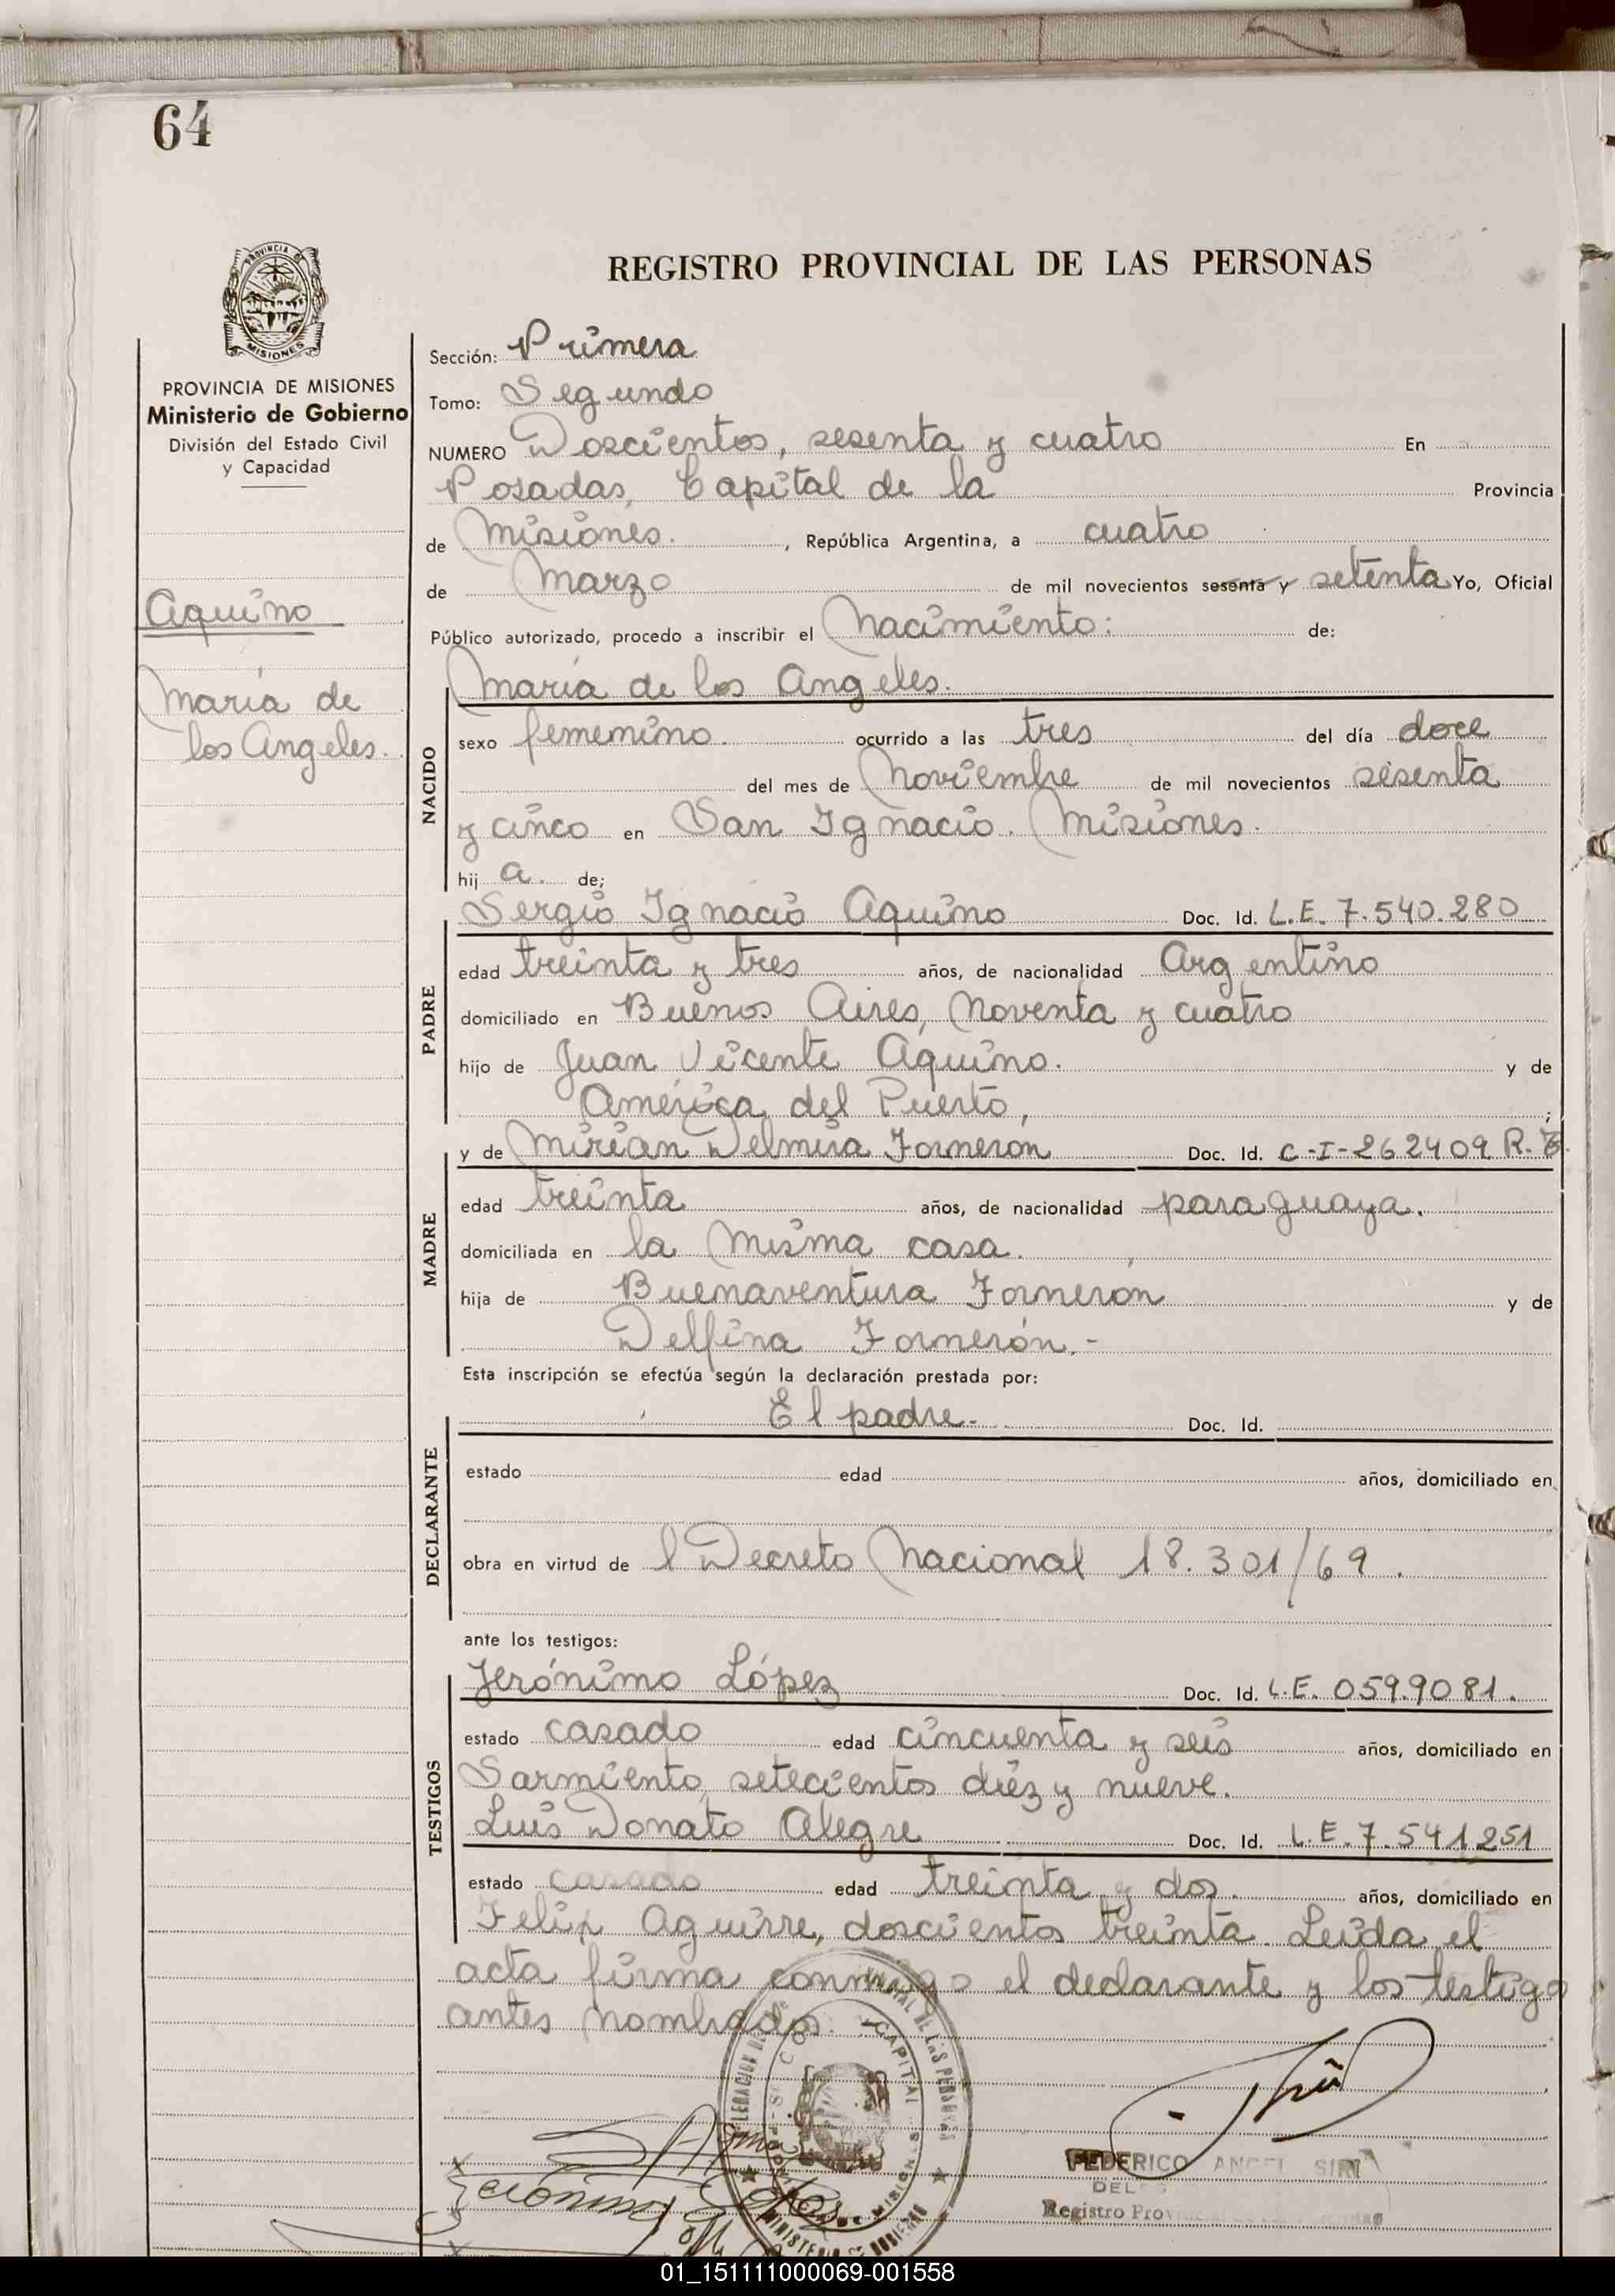 64
PROVINCIA DE
MISIONES
PROVINCIA DE MISIONES
Ministerio de Gobierno
División del Estado Civil
y Capacidad
Aquino
María de
los Angeles.
REGISTRO PROVINCIAL DE LAS PERSONAS
Sección: Primera
Tomo: Segundo
NUMERO Doscientos, sesenta y cuatro En
Posadas, Capital de la Provincia
de Misiones. , República Argentina, a cuatro
de Marzo de mil novecientos sesenta y setenta Yo, Oficial
Público autorizado, procedo a inscribir el Nacimiento: de:
María de los Angeles.
NACIDO
sexo femenino. ocurrido a las tres del día doce
del mes de Noviembre de mil novecientos sesenta
y cinco en San Ignacio. Misiones.
hij a. de;
Sergio Ignacio Aquino Doc. Id. L.E. 7.540.280
PADRE
edad treinta y tres años, de nacionalidad Argentino
domiciliado en Buenos Aires, Noventa y cuatro
hijo de Juan Vicente Aquino. y de
América del Puerto, ;
y de Mirian Delmira Formerón Doc. Id. C-I-262409 R.
MADRE
edad treinta años, de nacionalidad paraguaya.
domiciliada en la misma casa.
hija de Buenaventura Formerón y de
Delfina Formerón.-
Esta inscripción se efectúa según la declaración prestada por:
El padre.- Doc. Id.
DECLARANTE
estado edad años, domiciliado en
obra en virtud de l Decreto Nacional 18.301/69.
ante los testigos:
Jerónimo López Doc. Id. L.E. 059.9081.
TESTIGOS
estado casado edad cincuenta y seis años, domiciliado en
Sarmiento, setecientos diéz y nueve.
Luis Donato Alegre Doc. Id. L.E. 7.541251
estado casado edad treinta y dos. años, domiciliado en
Felix Aguirre, doscientos treinta. Leida el
acta firma conmigo el declarante y los testigo
antes nombrados.
CAPITAL
MINISTERIO DE GOBIERNO
FEDERICO ANGEL SIRI
DEL
Registro Prov
01_151111000069-001558